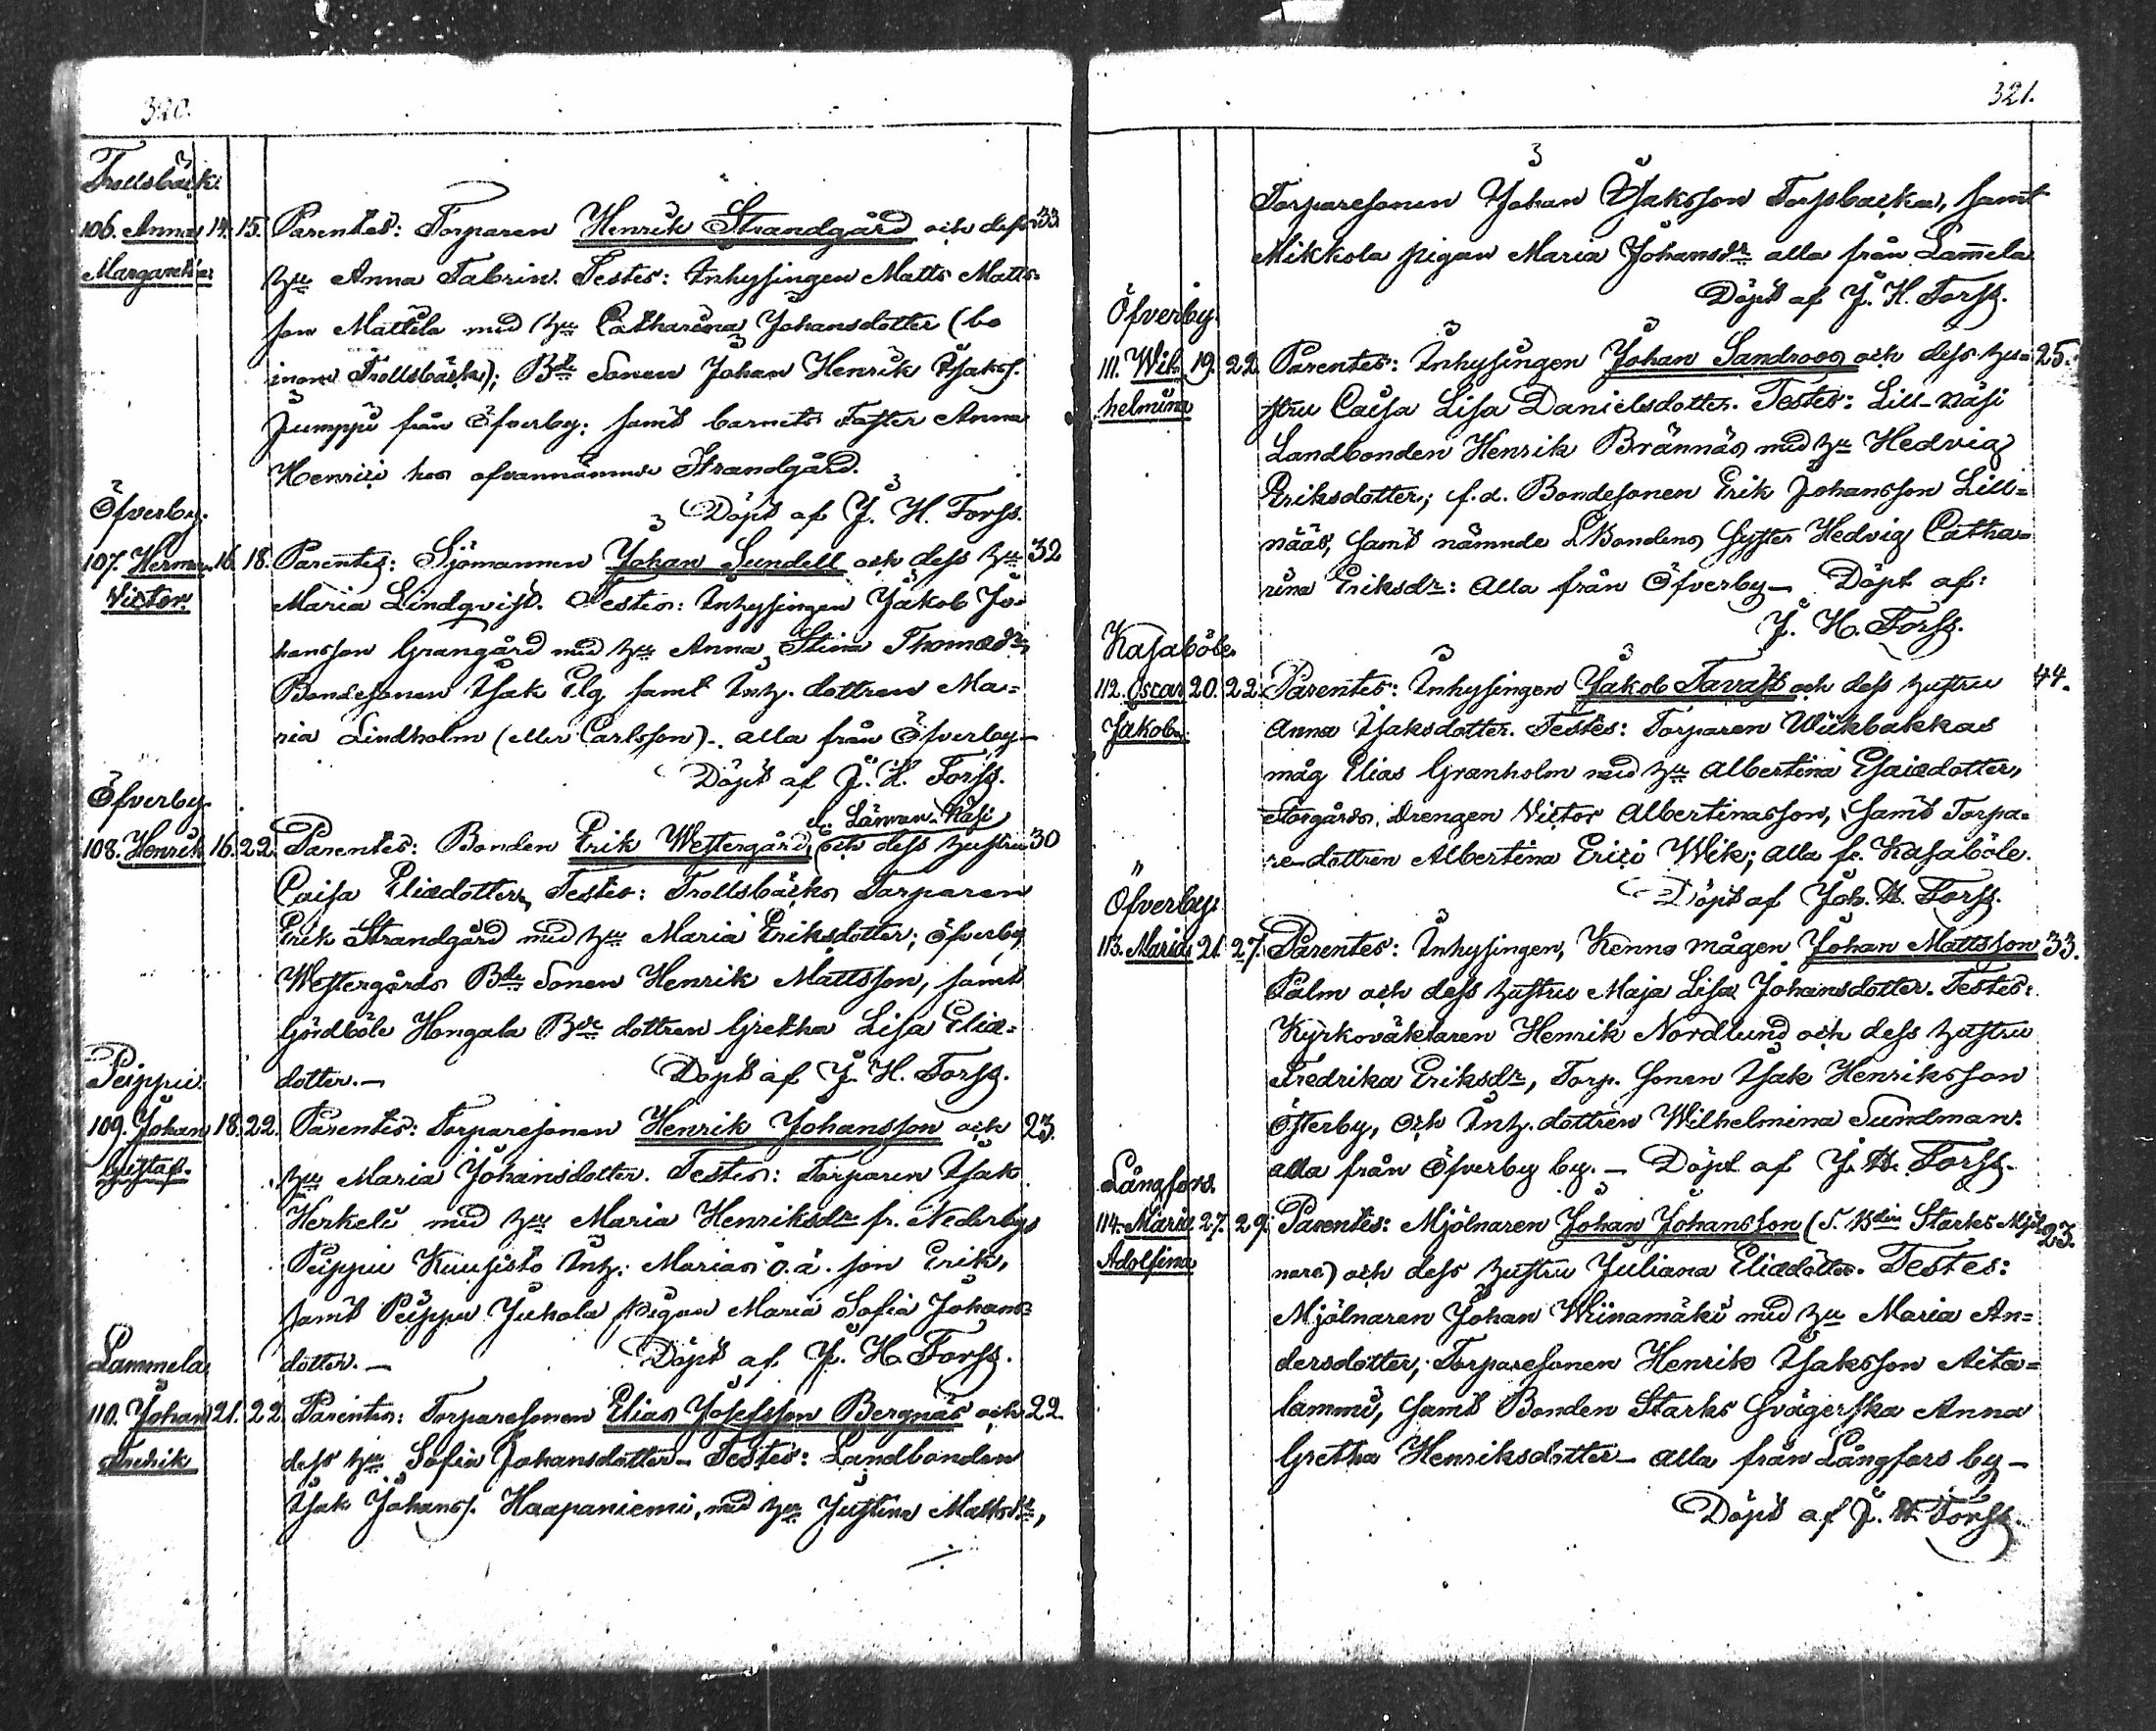 320.
Trollsbäck
106. Anna 14. 15. Parentes: Torparen Henrik Strandgård och dess 33
Margaretha hu Anna Fabrin. Testes: Inhysingen Matts Matts-
son Mattila med hu Catharina Johansdotter (bo
inom Trollsbäck); Bde Sonen Johan Henrik Isakss.
Jumppi från Öfverby; samt barnets Faster Anna
Henrici hos ofvannämnde Strandgård.
Döpt af J. H. Forss.
Öfverby.
107. Herman 16. 18. Parentes: Sjömannen Johan Sundell och dess hu 32
Victor. Maria Lindqvist. Testes: Inhysingen Jakob Jo-
hansson Grangård med hu Anna Stina Thomasdr,
Bondesonen Isak Elg samt Inh. dottren Ma-
ria Lindholm (eller Carlsson). alla från Öfverby—
Döpt af J. H. Forss.
Öfverby.
108. Henrik 16. 22. Parentes: Bonden Erik Westergård, och dess hustru 30
Caisa Eliædotter, Testes: Trollsbäcks Torparen
Erik Strandgård med hu Maria Eriksdotter; Öfverby
Westergårds Bde Sonen Henrik Mattsson, samt
Gördböle Hongala Bde dottren Gretha Lisa Eliæ-
dotter.— Döpt af J. H. Forss.
Peippu.
109. Johan 18. 22. Parentes: Torparesonen Henrik Johansson och 23.
Gustaf. hu Maria Johansdotter. Testes: Torparen Isak
Herkeli med hu Maria Henriksdr fr. Nederby,
Peippu Kuusisto Inh: Marias o.ä. son Erik,
samt Peippu Juhola pigan Maria Sofia Johans-
dotter.— Döpt af J. H. Forss.
Lammela
110. Johan 21. 22. Parentes: Torparesonen Elias Josefsson Bergnäs och 22.
Fredrik dess hu Sofia Johansdotter— Testes: Landbonden
Isak Johanss. Haapaniemi, med hu Justina Mattsdr,
321.
Torparesonen Johan Isaksson Torsbacka, samt
Mikkola pigan Maria Johansdr alla från Lam̄ela
Döpt af J. H. Forss.
Öfverby.
111. Wil- 19. 22. Parentes: Inhysingen Johan Sandroos och dess hu- 25.
helmina stru Caisa Lisa Danielsdotter. Testes: Lill-Näsi
Landbonden Henrik Brännäs med hu Hedvig
Eriksdotter; f.d. Bondesonen Erik Johansson Lill-
nääs, samt nämnde LBondens syster Hedvig Catha-
rina Eriksdr: alla från Öfverby— Döpt af:
J. H. Forss.
Kasaböle
112. Oscar 20. 22. Parentes: Inhysingen Jakob Tavast och dess hustru 44.
Jakob. Anna Isaksdotter. Testes: Torparen Wiikbakkas
måg Elias Granholm med hu Albertina Esaiædotter,
Storgårds drengen Victor Albertinasson, samt Torpa-
re-dottren Albertina Erici Wik; alla fr. Kasaböle.
Döpt af Joh. H. Forss.
Öfverby:
113. Maria 21. 27. Parentes: Inhysingen, Kenno mågen Johan Mattsson 33.
Palm och dess hustru Maja Lisa Johansdotter. Testes:
Kyrkoväktaren Henrik Nordlund och dess hustru
Fredrika Eriksdr, Torp. sonen Isak Henriksson
Österby, och Inh. dottren Wilhelmina Sundman.
alla från Öfverby by.— Döpt af J. H. Forss.
Långfors.
114. Maria 27. 29. Parentes: Mjölnaren Johan Johansson Starks Mjöl 23.
Adolfina nare) och dess hustru Juliana Eliædotter. Testes:
Mjölnaren Johan Wiinamäki med hu Maria An-
dersdotter; Torparesonen Henrik Isaksson Aita-
lammi, samt Bonden Starks Svägerska Anna
Gretha Henriksdotter— alla från Långfors by—
Döpt af J. H. Forss.